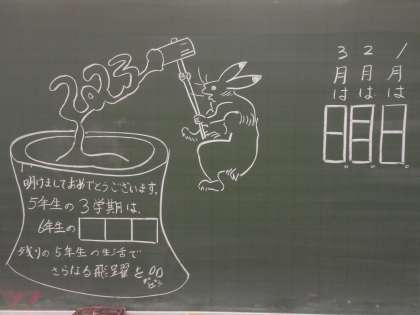 2023
明けましておめでとうございます。
5年生の3学期は、
6年生の
残りの5年生の生活で
さらなる飛躍を
1月は
2月は
3月は